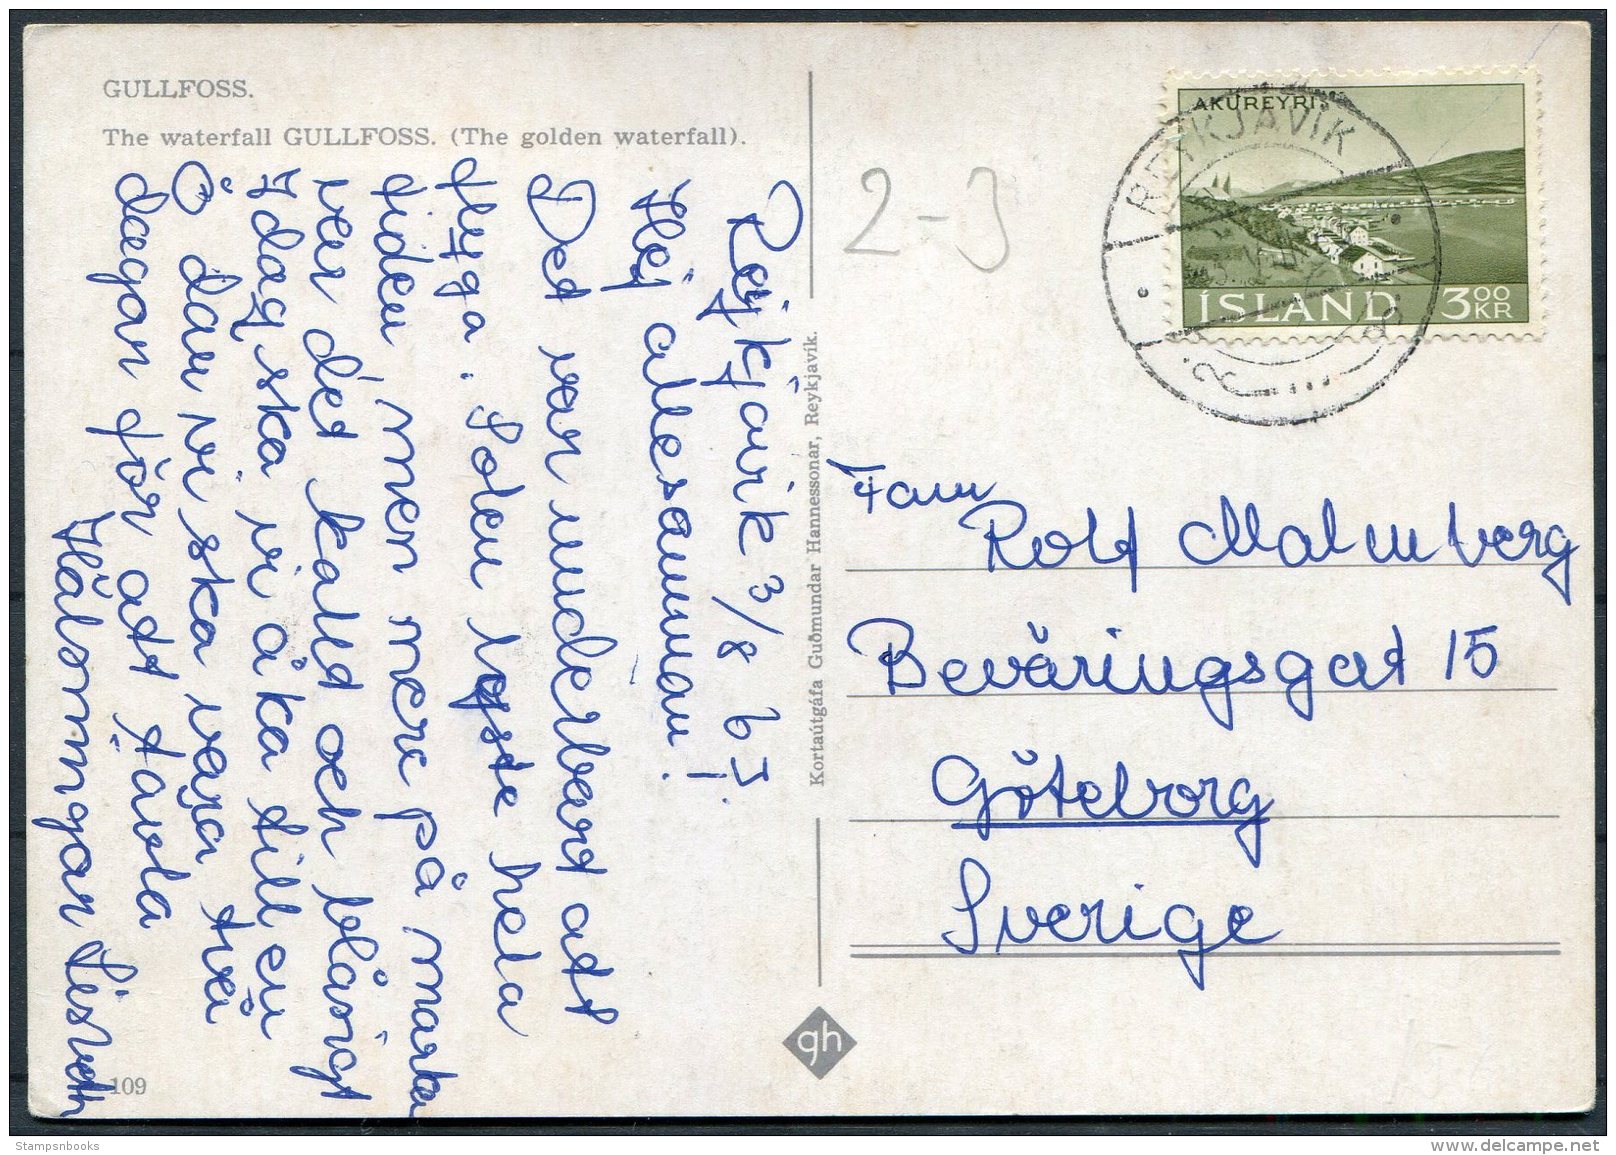 GULLFOSS.
The waterfall GULLFOSS. (The golden waterfall).
Rejkjavik 3/8 63.
Hej allesamman!
Det var underbart att
flyga. Solen lyste hela
tiden men nere på marken
var det kallt och blåsigt
Idag ska vi åka till en
Ö där vi ska vara två
dagar för att tävla
Hälsningar Lisbeth
109
Kortaútgáfa Guðmundar Hannessonar, Reykjavík.
gh
2-3
AKUREYRI
ÍSLAND 3 00 KR
REYKJAVÍK
Fam
Rolf Malmberg
Beväringsgat 15
Göteborg
Sverige
Stampsnbooks
www.delcampe.net